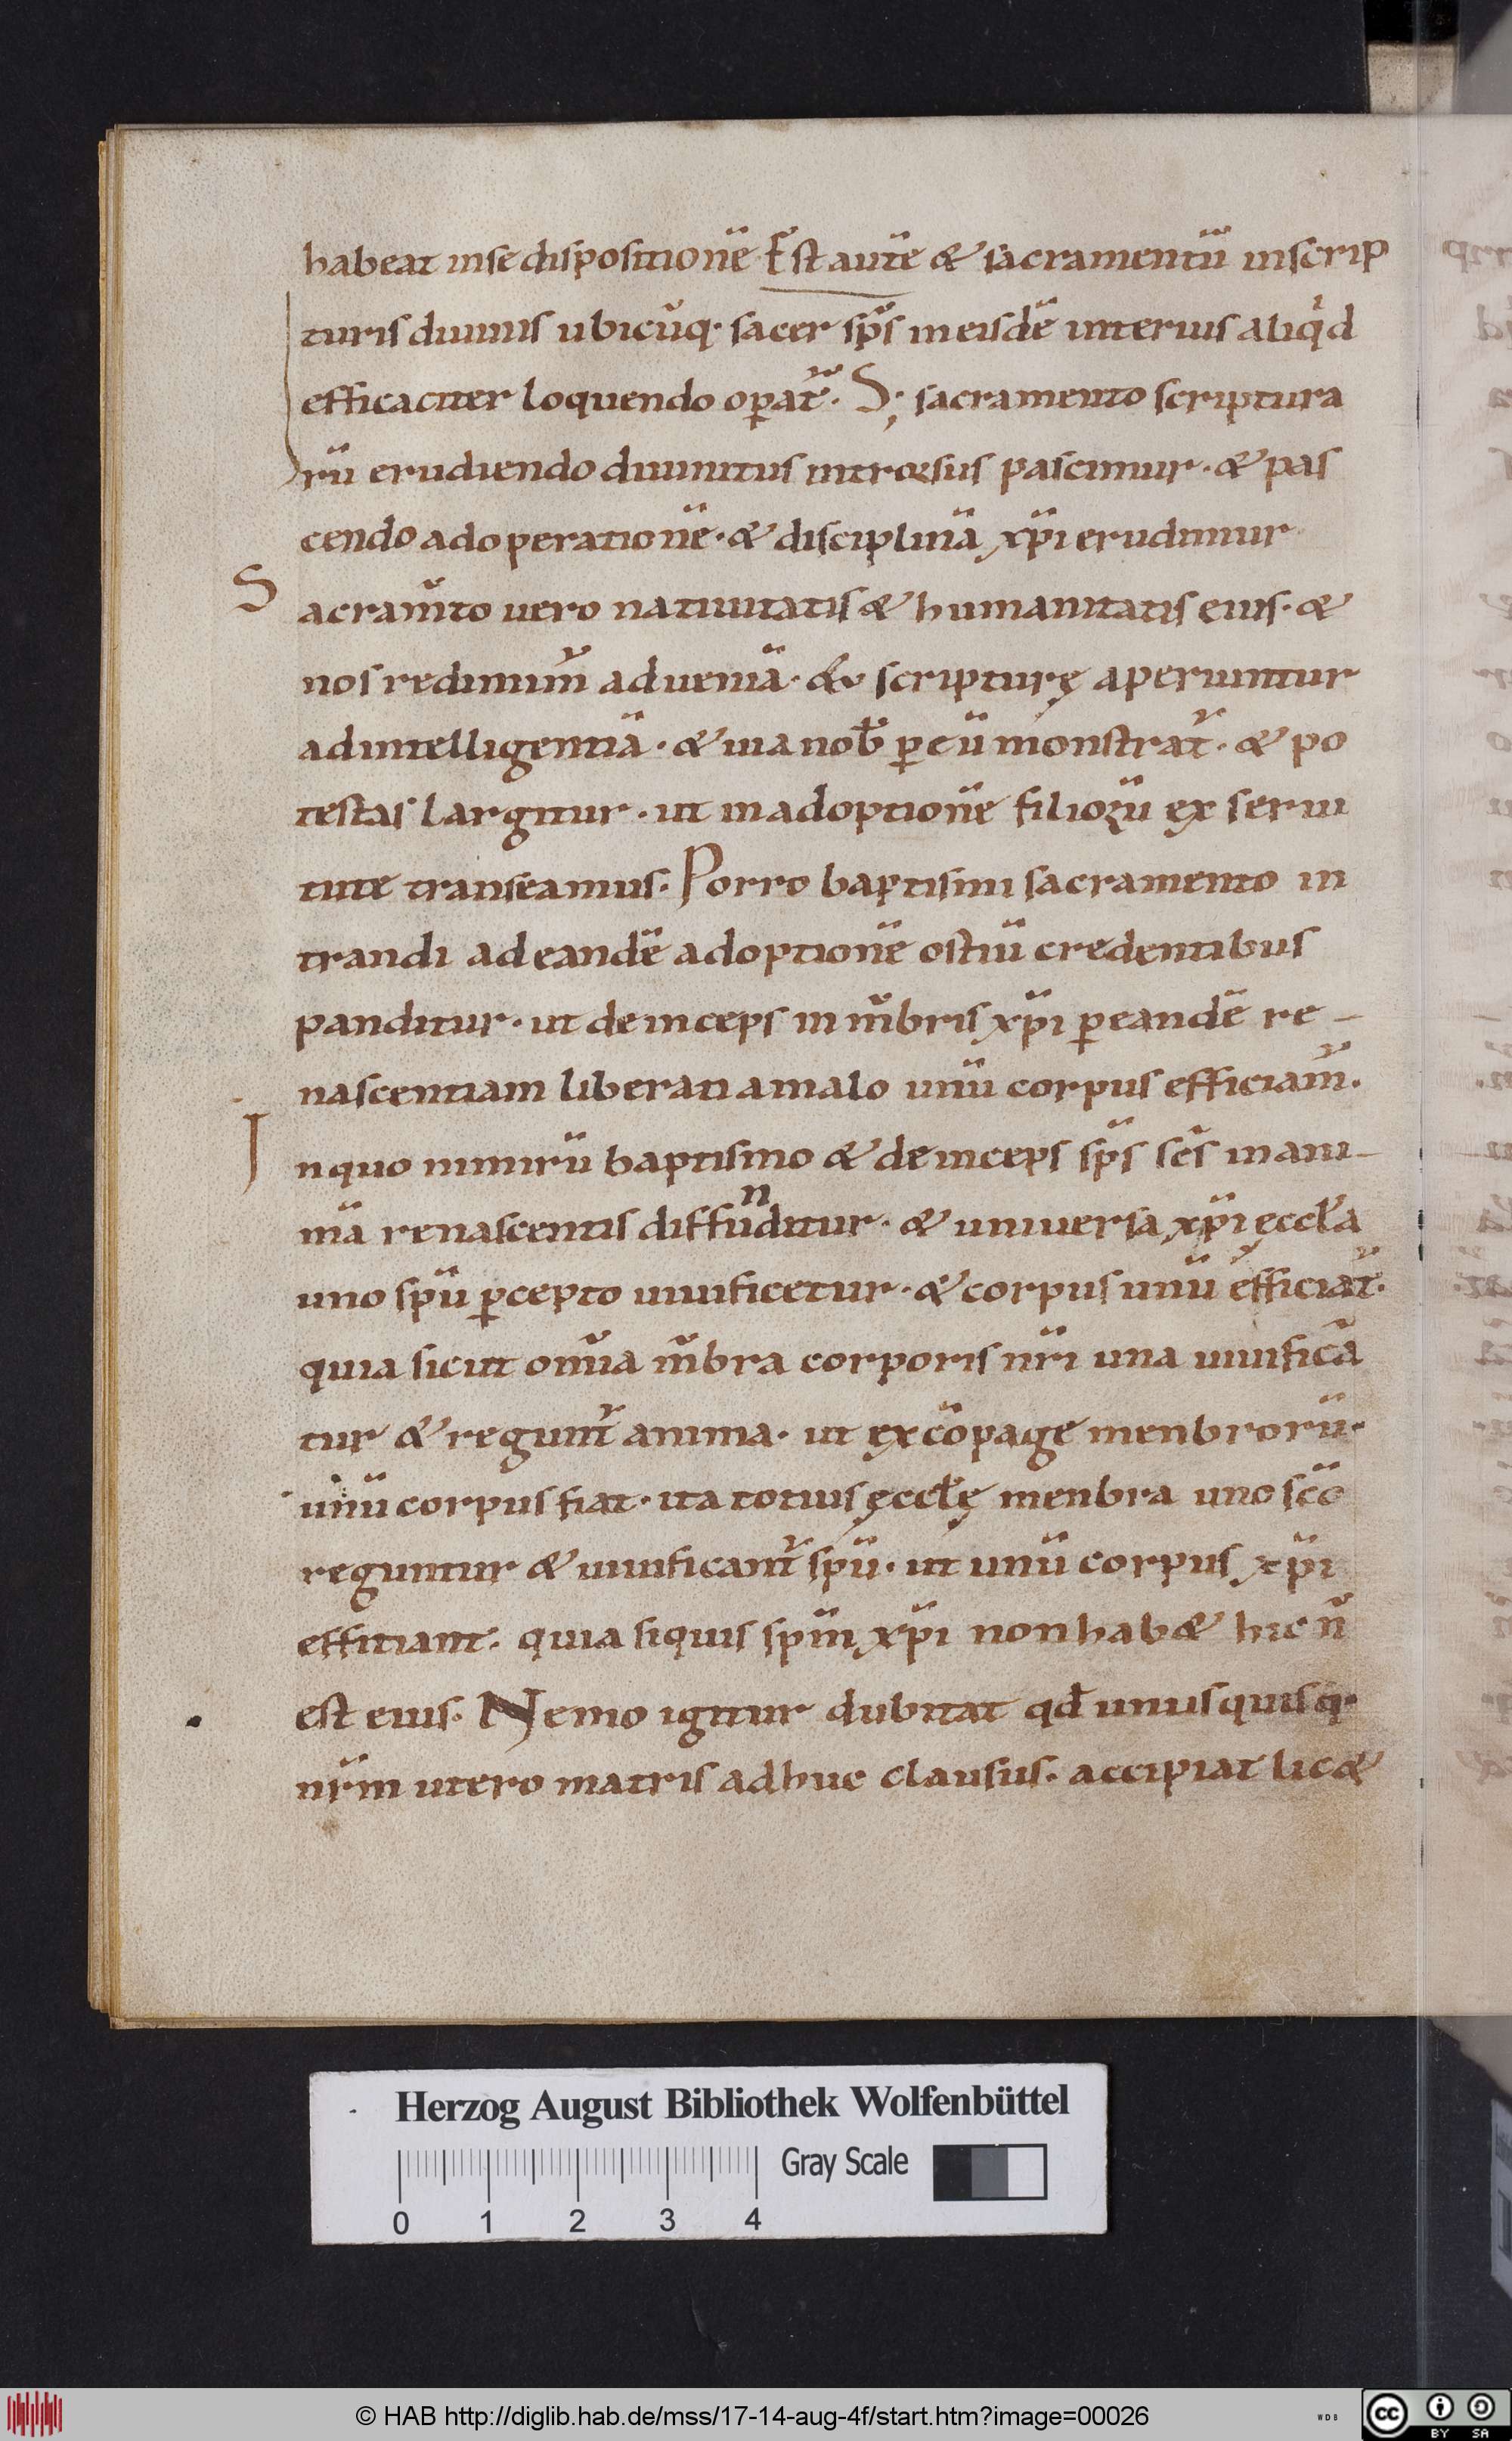 habeat inse dispositionē Est autē & sacramentū inscrip
turis diuinis ubicūq· sacer sp̄s in eisdē interius aliq̇d
efficaciter loquendo op̄at᷑. S; sacramento scriptura
rū erudiendo diuinitus introrsus pascimur· & pas
cendo ad operationē· & disciplinā xp̄i erudimur
Sacram̄to uero natiuitatis & humanitatis eius· &
nos redimim᷑ ad ueniā· & scripturę aperiuntur
ad intelligentiā· & uia nob̄ p̄ eū monstrat᷑· & po
testas largitur· ut in adoptionē filioꝝū ex serui
tute transeamus. Porro baptismi sacramento in
trandi ad eandē adoptionē ostiū credentibus
panditur· ut deinceps in m̄bris xp̄i ꝑ eandē re-
nascentiam liberati a malo unū corpus efficiam᷑.
In quo nimirū baptismo & deinceps sp̄s sc̄s in ani-
mā renascentis diffunditur· & uniuersa xp̄i ęccl̄a
uno spū ꝑcepto uiuificetur· & corpus unū efficiat᷑·
quia sicut om̄a m̄bra corporis nr̄i una uiuificā
tur & regunt᷑ anima· ut ex cōpage menbrorū·
unū corpus fiat· ita totius ęccl̄ę menbra uno sc̄o
reguntur & uiuificant᷑ spū· ut unū corpus xp̄i
effitiant. quia siquis spm̄ xp̄i non hab& hic n̄
est eius. Nemo igitur dubitat qd̄ unusquisq·
nr̄m utero matris adhuc clausus· accipiat lic&
Herzog August Bibliothek Wolfenbüttel
Gray Scale
0 1 2 3 4
© HAB http://diglib.hab.de/mss/17-14-aug-4f/start.htm?image=00026
WDB
cc BY SA